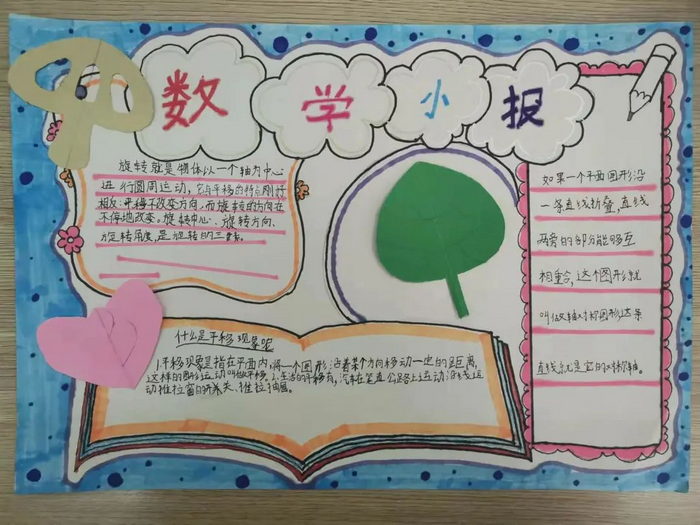 数学小报
旋转就是物体以一个轴为中心
进行圆周运动，它与平移的特点刚好
相反：平移不改变方向，而旋转的方向在
不停地改变。旋转中心、旋转方向、
旋转角度，是旋转的三素。
如果一个平面图形沿
一条直线折叠，直线
两旁的部分能够互
相重合，这个图形就
叫做轴对称图形，这条
直线就是它的对称轴。
什么是平移现象呢
1.平移现象是指在平面内，将一个图形沿着某个方向移动一定的距离，
这样的图形运动叫做平移。2.生活的平移有，汽车在笔直公路上运动；沿线运
动推拉窗的开关、推拉抽屉。